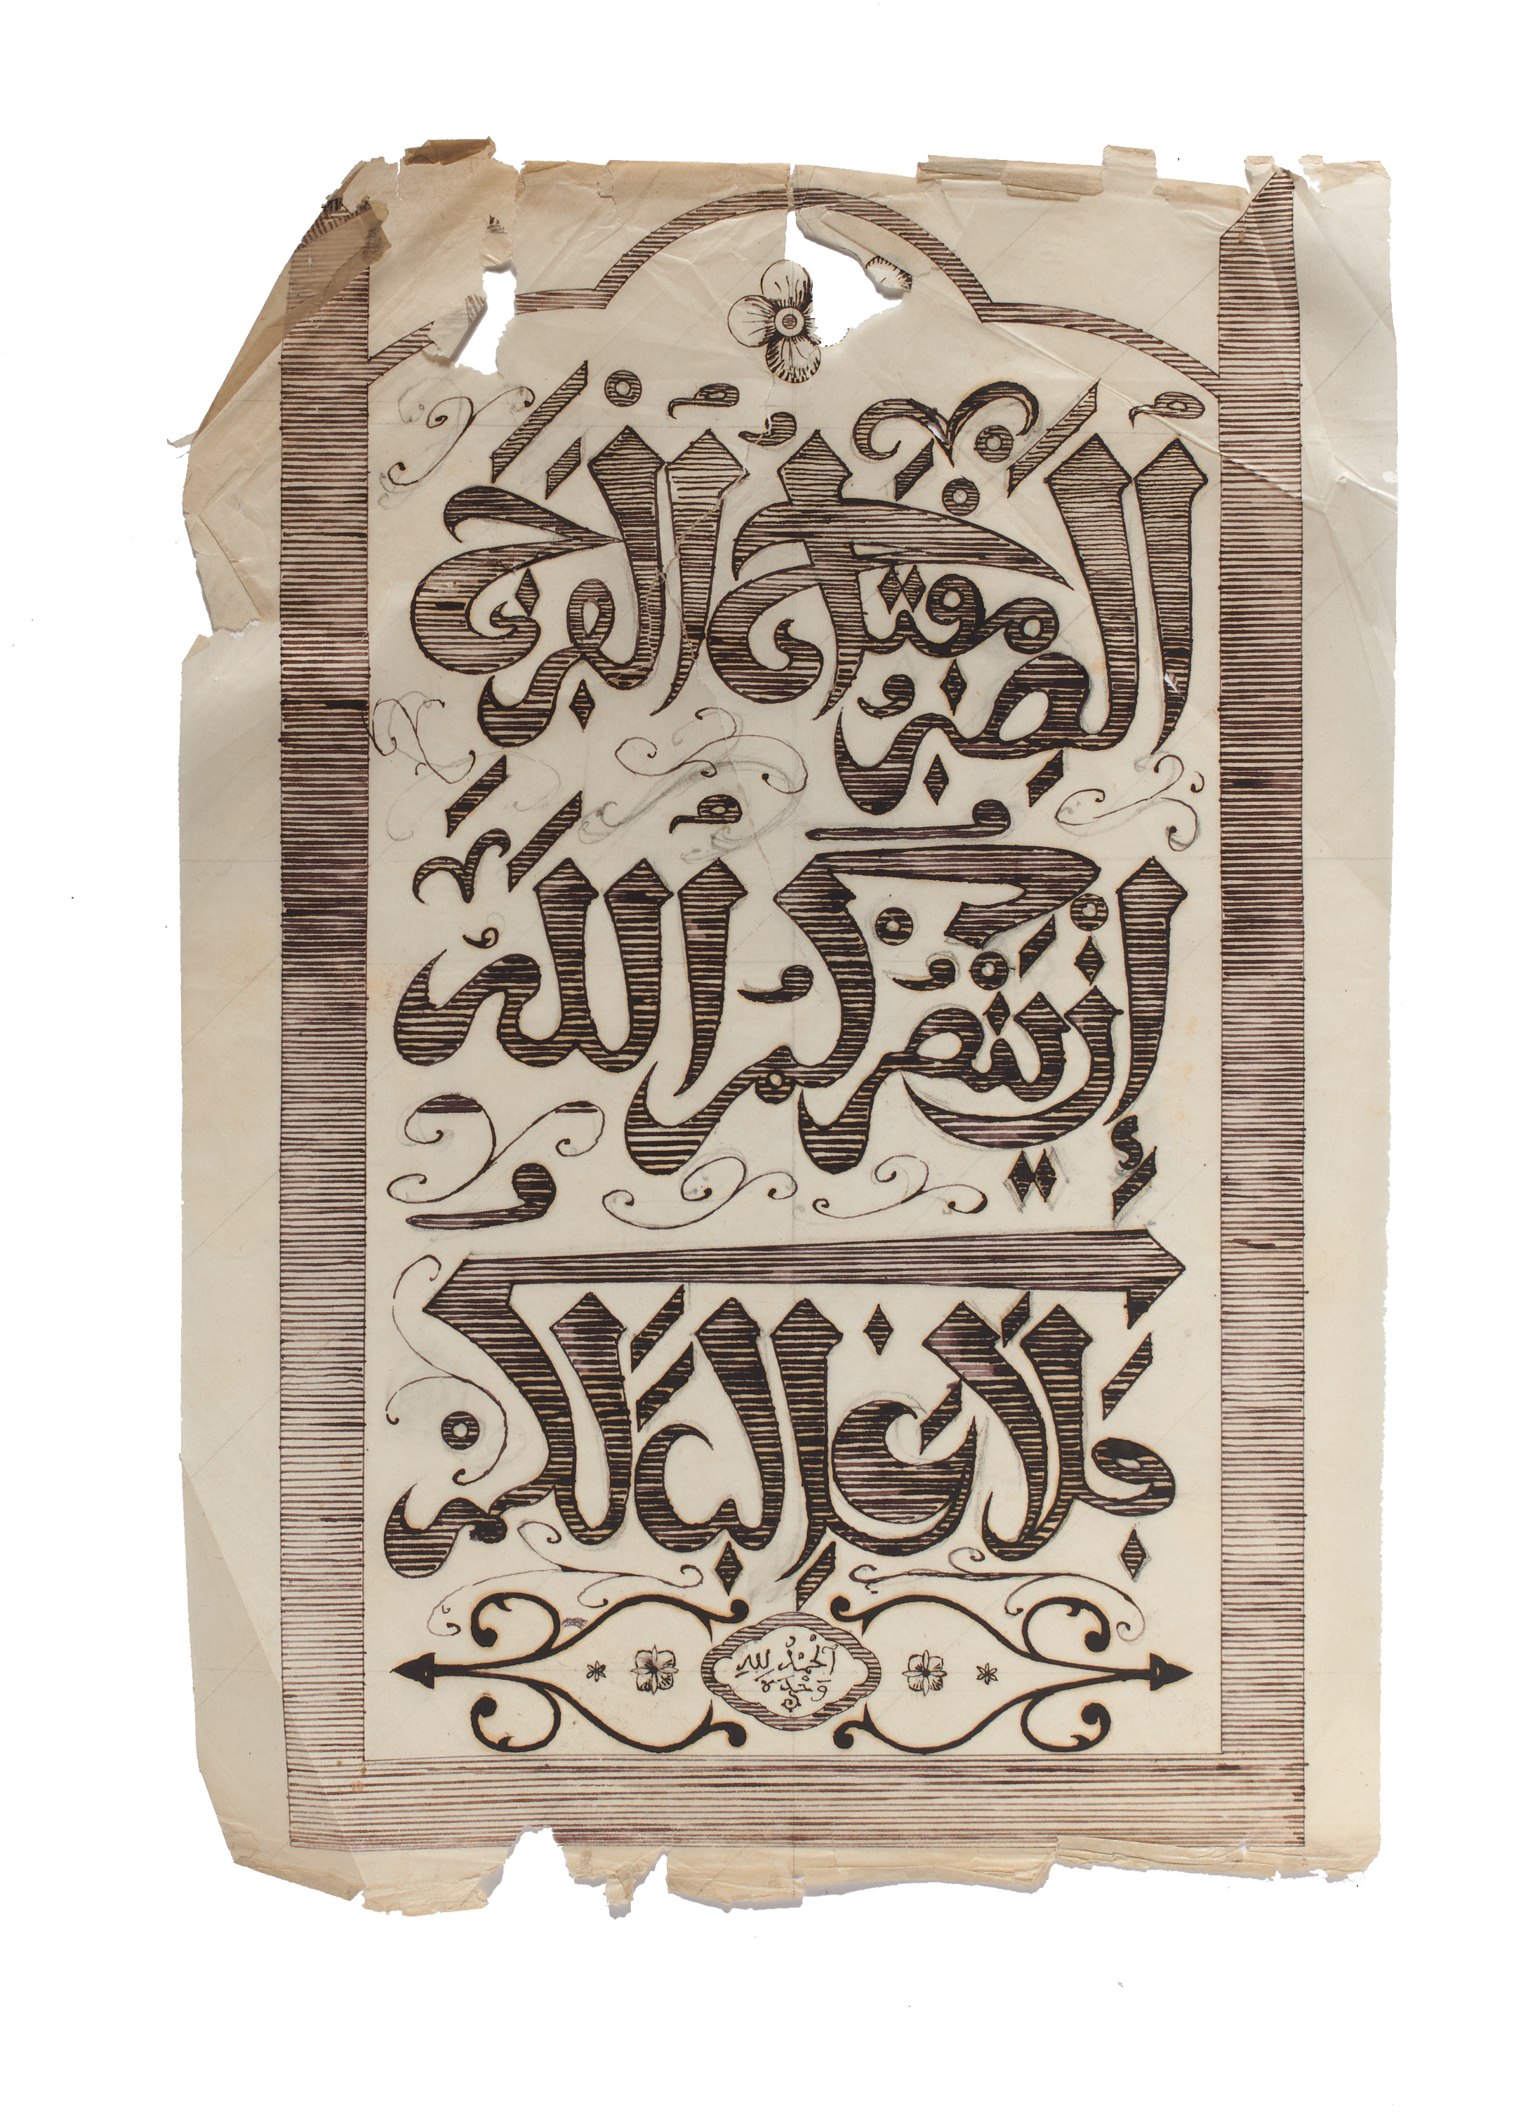 الصبر مفتاح الفرج
إن ينصركم الله
فلا غالب لكم
الحمد لله
وحده